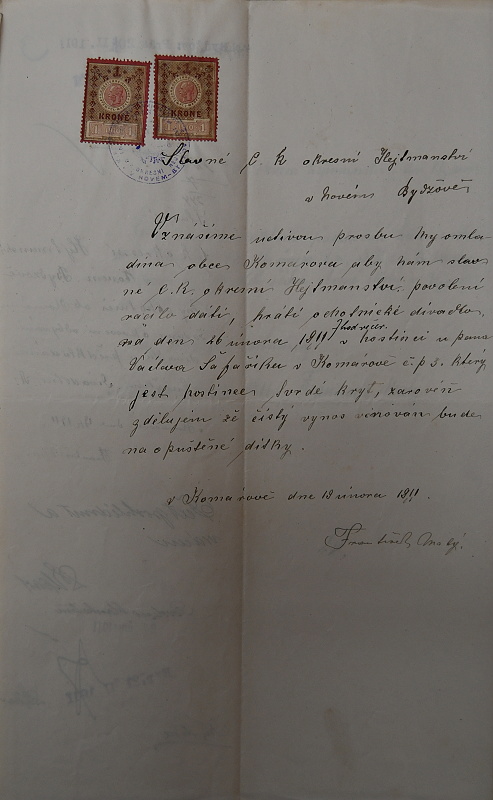 1 1
KRONE KRONE
1 1 1 1
Slavné C. k okresní Hejtmanství
v Novém Bydžově
Vznášíme uctivou prosbu My omla
dina obce Komárova aby nám slav
né C.K. okresní Hejtmanství povolení
ráčilo dáti, hráti ochotnické divadlo
dne 26 února 1911 v hostinci u pana
7 hod večer.
Václava Šapaříka v Komárově č.p 3. který
jest hostinec tvrdě kryt, zároveň
zdělujem žě čistý vynos věnován bude
na opuštěné dítky.
v Komárově dne 19 února 1911.
František Malý.